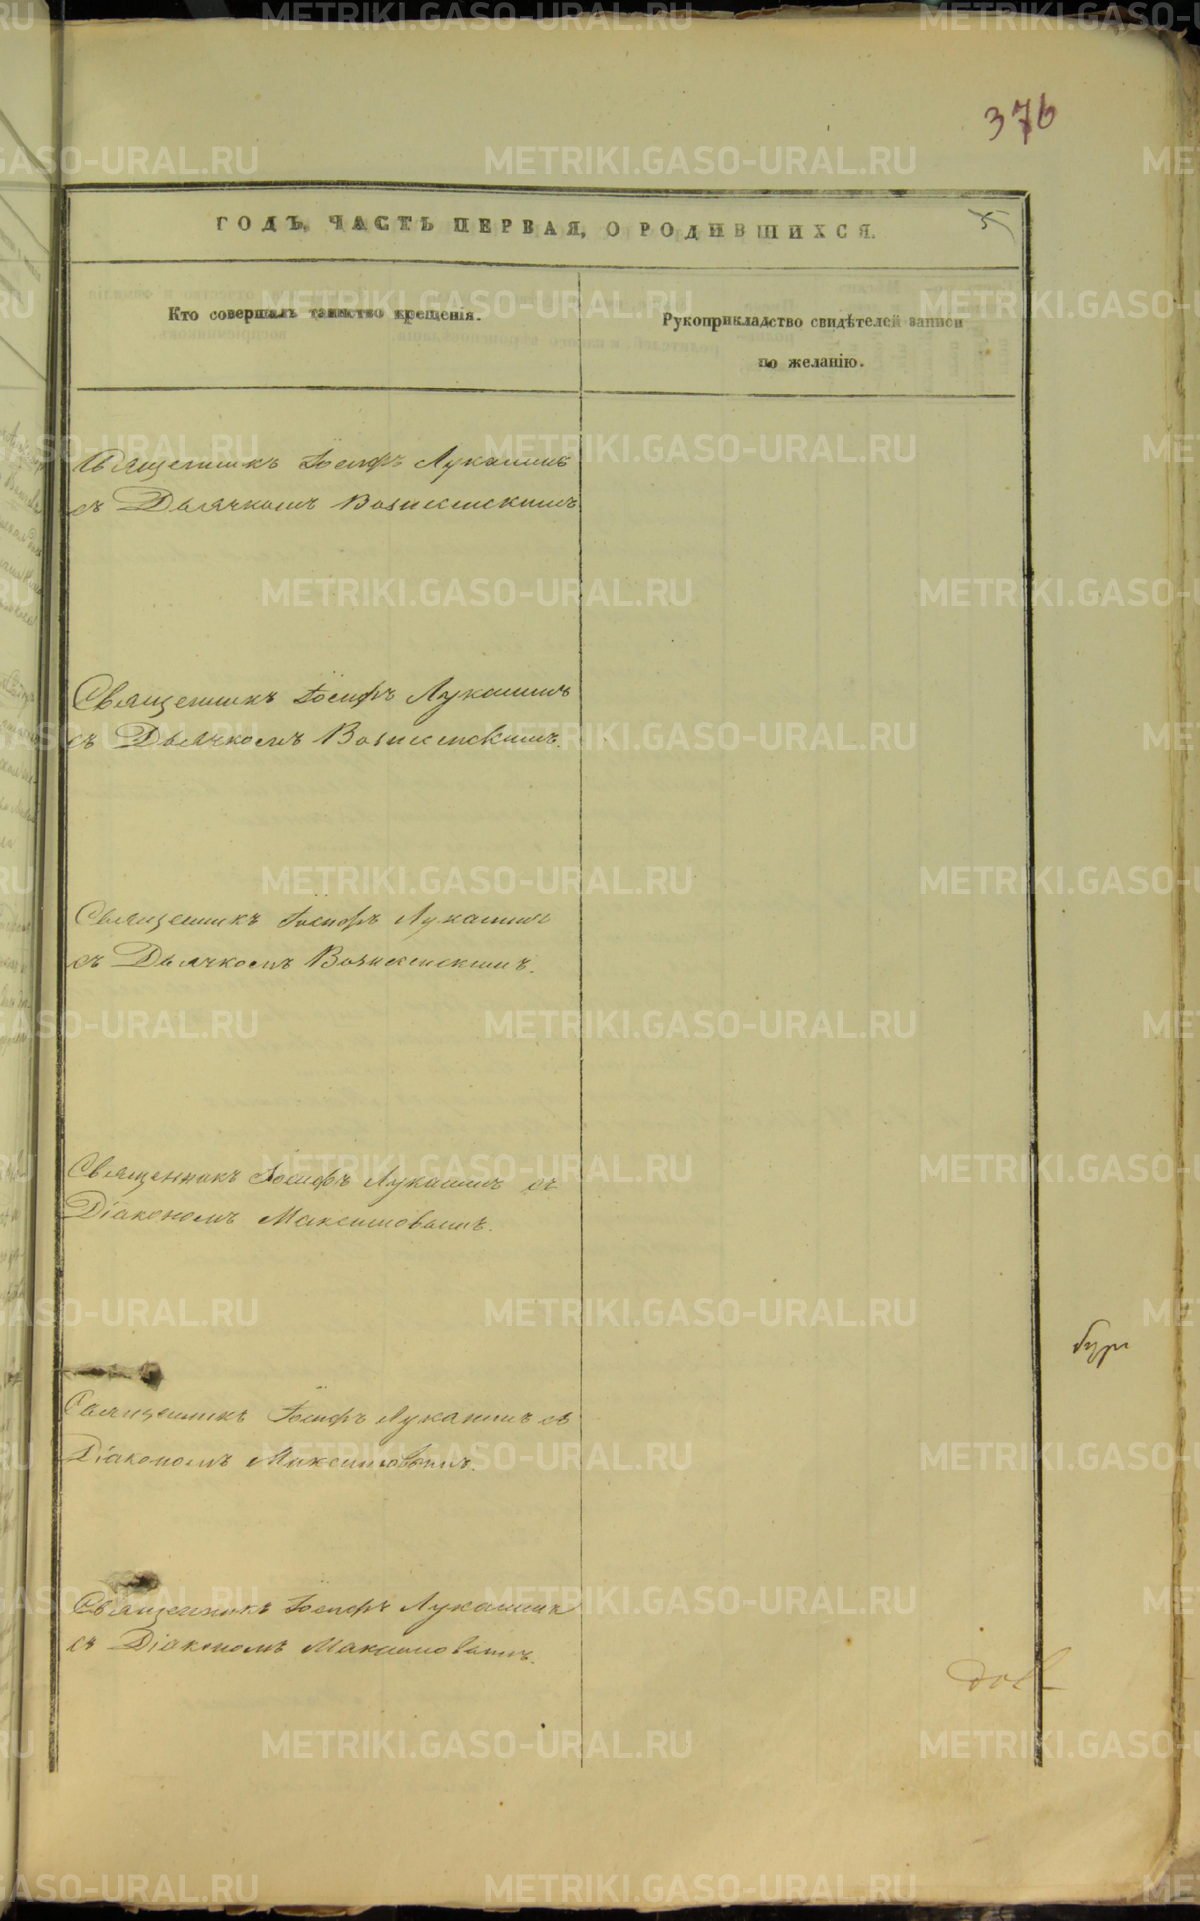 376
ГОДЪ, ЧАСТЬ ПЕРВАЯ, О РОДИВШИХСЯ.
5
Кто совершалъ таинство крещенія.
Рукоприкладство свидѣтелей записи
по желанію.
Священникъ Іосифъ Лукашинъ
съ Дьячкомъ Вознесенскимъ
Священникъ Іосифъ Лукашинъ
съ Дьячкомъ Вознесенскимъ.
Священникъ Іосифъ Лукашинъ
съ Дьячкомъ Вознесенскимъ.
Священникъ Іосифъ Лукашинъ съ
Діакономъ Максимовымъ.
Священникъ Іосифъ Лукашинъ съ
Діакономъ Максимовымъ.
Священникъ Іосифъ Лукашинъ
съ Діакономъ Максимовымъ.
METRIKI.GASO-URAL.RU